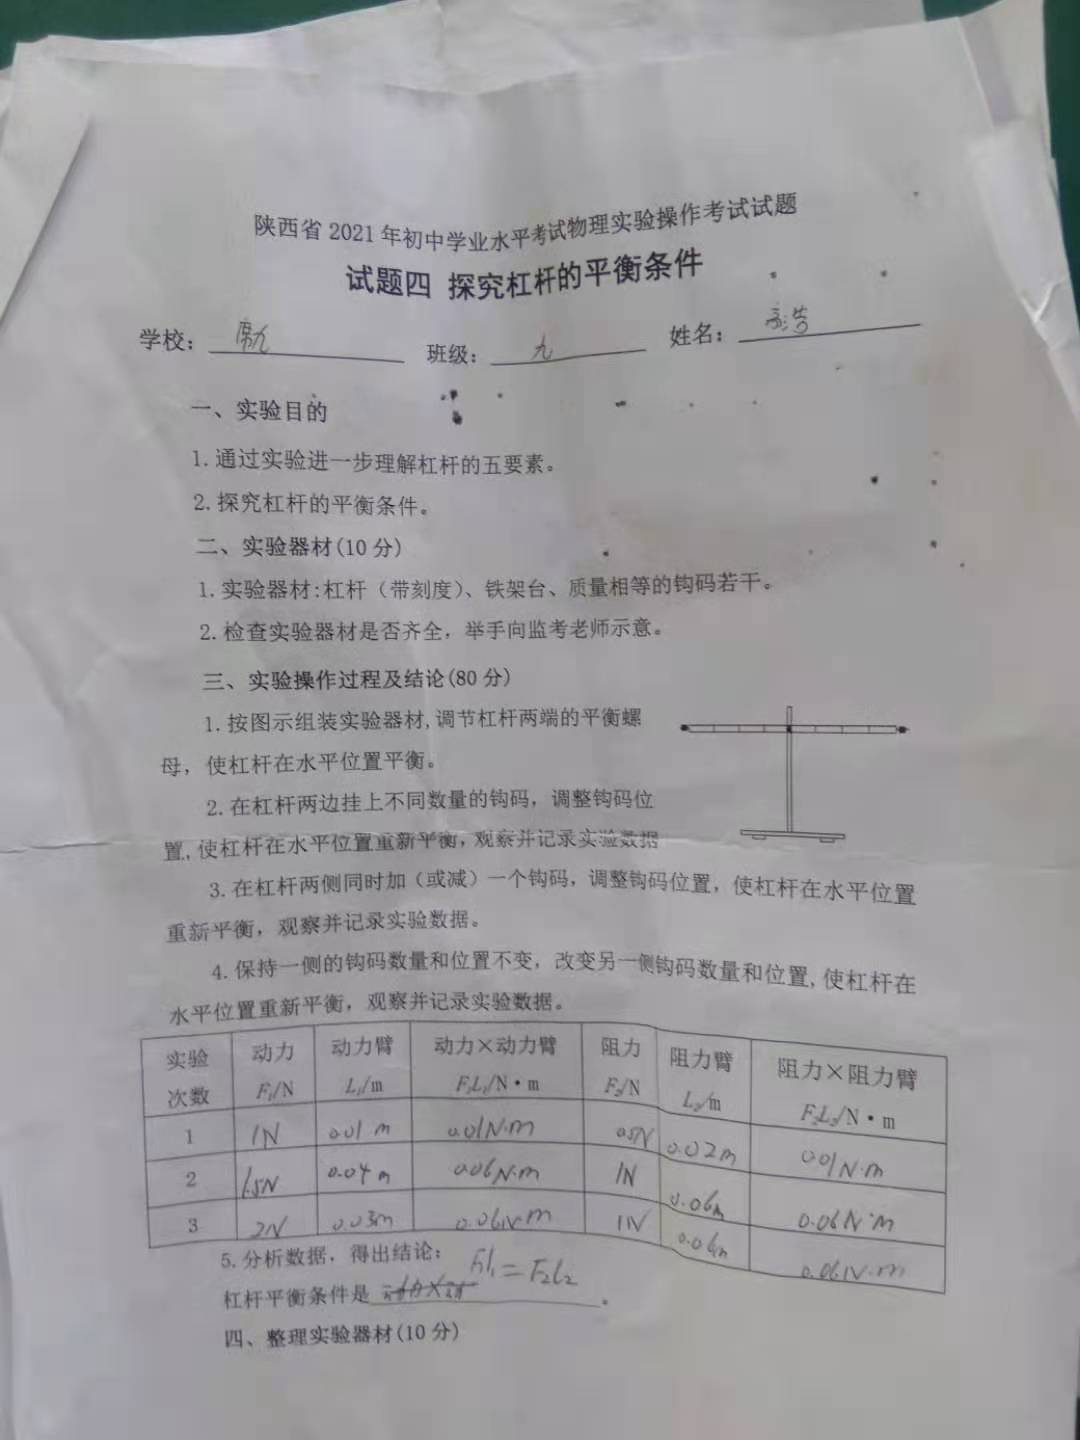 陕西省2021年初中学业水平考试物理实验操作考试试题
试题四 探究杠杆的平衡条件
学校： 班级： 九 姓名：
一、实验目的
1.通过实验进一步理解杠杆的五要素。
2.探究杠杆的平衡条件。
二、实验器材(10分)
1.实验器材:杠杆（带刻度）、铁架台、质量相等的钩码若干。
2.检查实验器材是否齐全，举手向监考老师示意。
三、实验操作过程及结论(80分)
1.按图示组装实验器材,调节杠杆两端的平衡螺
母，使杠杆在水平位置平衡。
2.在杠杆两边挂上不同数量的钩码，调整钩码位
置,使杠杆在水平位置重新平衡，观察并记录实验数据
3.在杠杆两侧同时加（或减）一个钩码，调整钩码位置，使杠杆在水平位置
重新平衡，观察并记录实验数据。
4.保持一侧的钩码数量和位置不变，改变另一侧钩码数量和位置,使杠杆在
水平位置重新平衡，观察并记录实验数据。
实验次数 动力F₁/N 动力臂L₁/m 动力×动力臂F₁L₁/N·m 阻力F₂/N 阻力臂L₂/m 阻力×阻力臂F₂L₂/N·m
1 1N 0.01 m 0.01N·m 0.5N 0.02m 0.01N·m
2 1.5N 0.04m 0.06N·m 1N 0.06m 0.06N·m
3 2N 0.03m 0.06N·m 1N 0.06m 0.06N·m
5.分析数据，得出结论：
杠杆平衡条件是 F₁l₁=F₂l₂ 。
四、整理实验器材(10分)